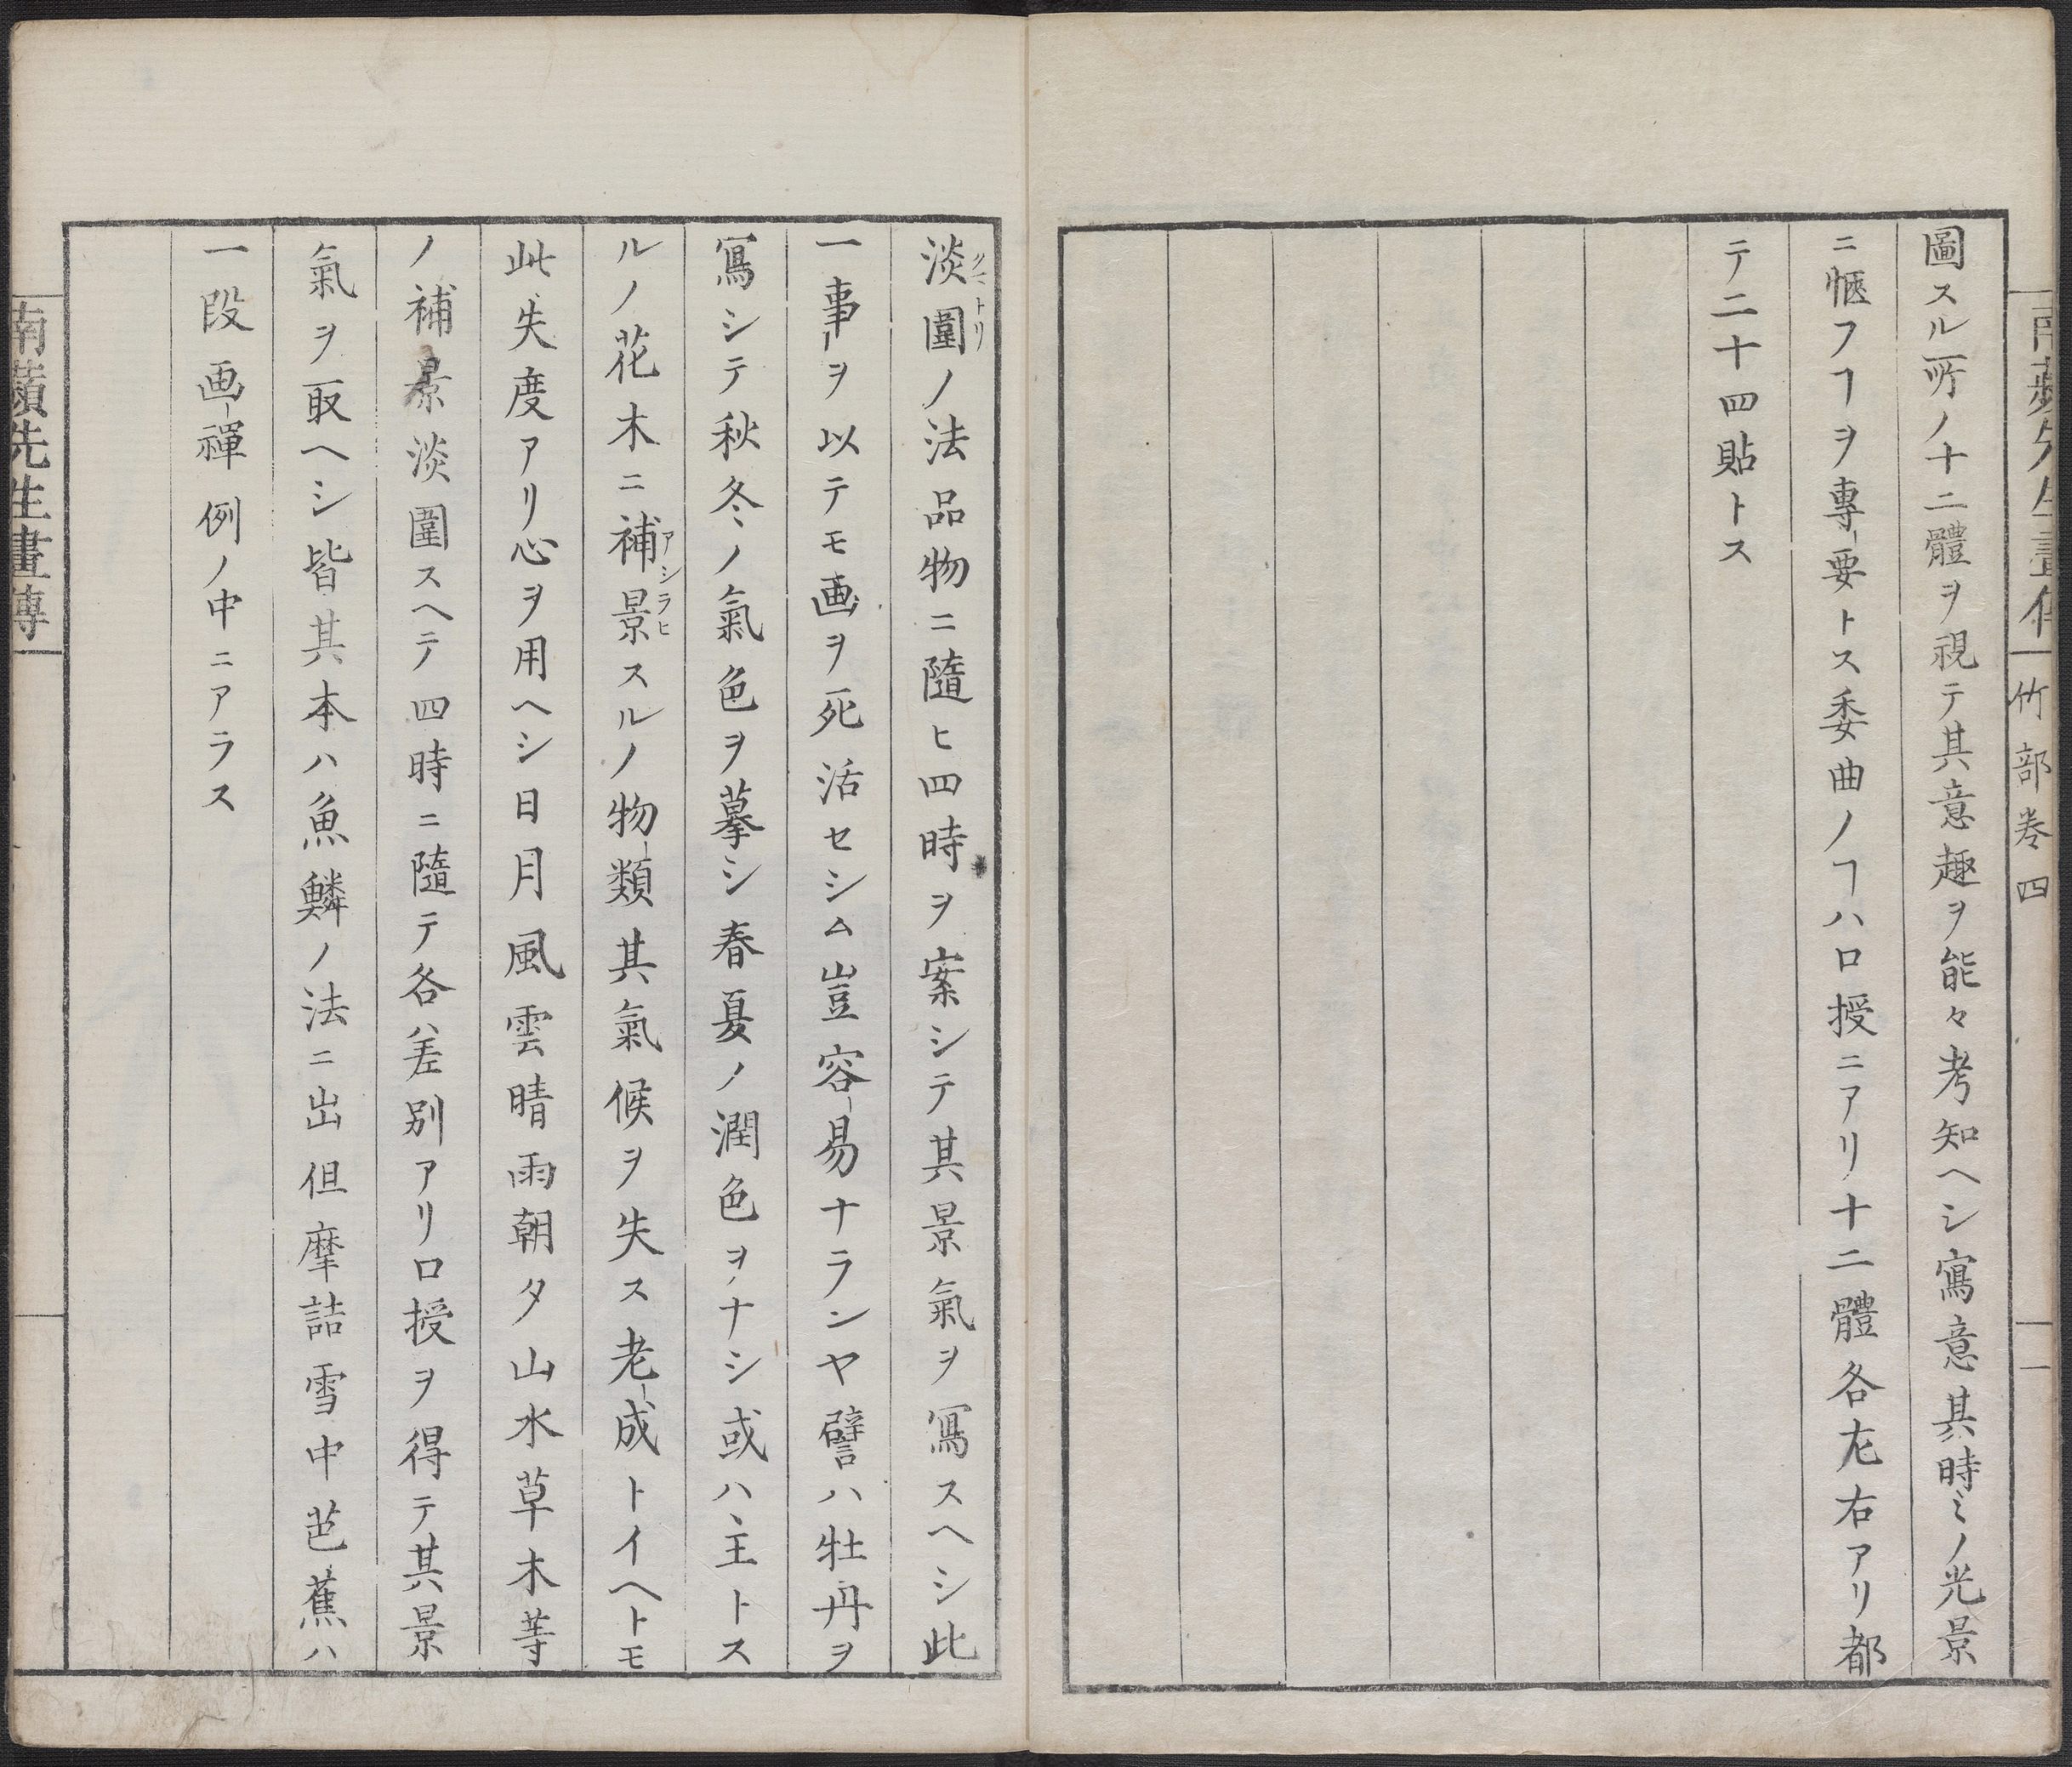 圖スル所ノ十二體ヲ視テ其意趣ヲ能々考知ヘシ寫意其時〻ノ光景
ニ愜フヿヲ專要トス委曲ノヿハ口授ニアリ十二體各左右アリ都
テ二十四貼トス
竹部卷四
一
淡圍ノ法品物ニ隨ヒ四時ヲ案シテ其景氣ヲ寫スヘシ此
クマトリ
一事ヲ以テモ画ヲ死活セシム豈容易ナランヤ譬ハ牡丹ヲ
寫シテ秋冬ノ氣色ヲ摹シ春夏ノ潤色ヲナシ或ハ主トス
ルノ花木ニ補景スルノ物類其氣候ヲ失ス老成トイヘトモ
アシラヒ
此失度アリ心ヲ用ヘシ日月風雲晴雨朝夕山水草木等
ノ補景淡圍スヘテ四時ニ隨テ各差別アリ口授ヲ得テ其景
氣ヲ取ヘシ皆其本ハ魚鱗ノ法ニ出但摩詰雪中芭蕉ハ
一段画禪例ノ中ニアラス
先生畫傳